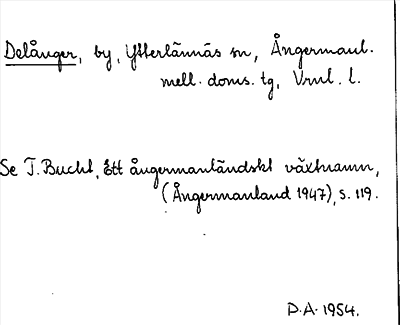 Delånger, by, Ytterlännäs sn, Ångermanl.
mell. doms. tg, Vrnl. l.
Se T. Bucht, Ett ångermanländskt växtnamn,
(Ångermanland 1947), s. 119.
D.A. 1954.